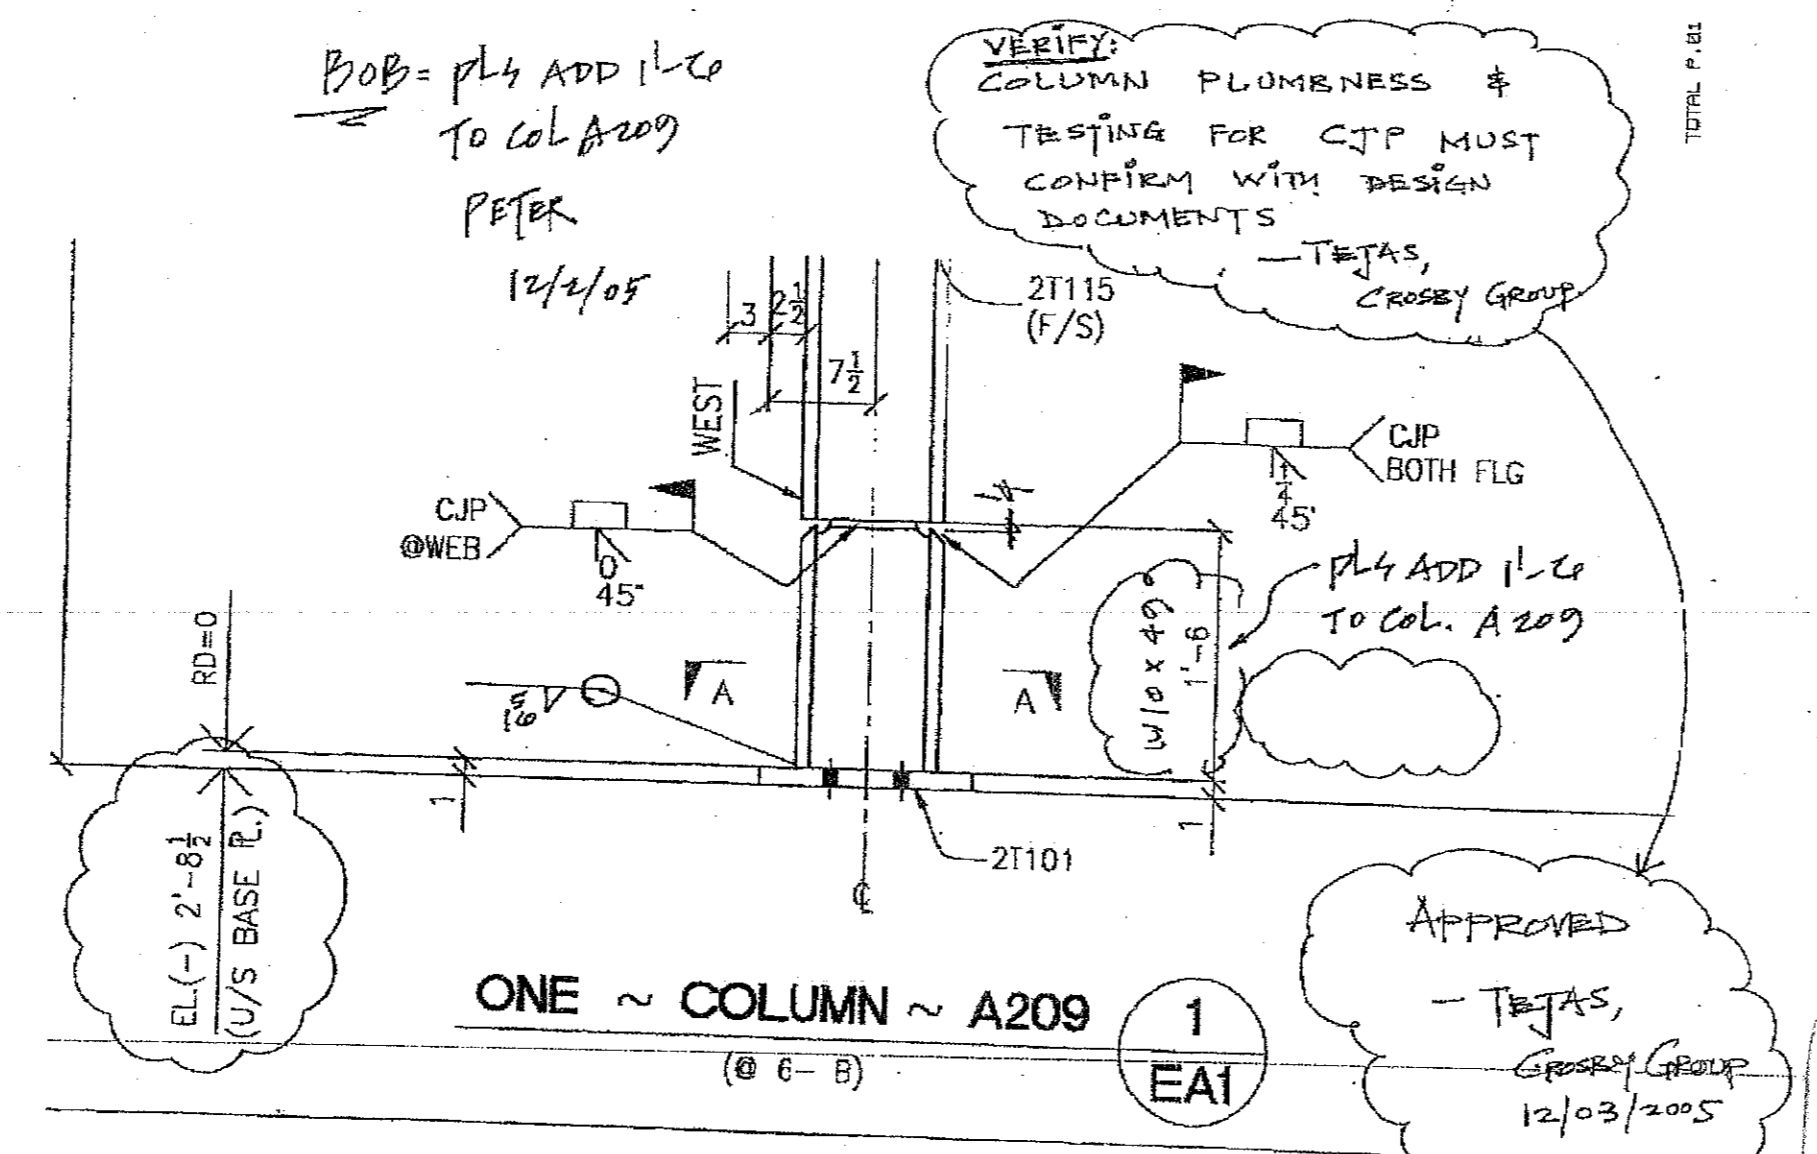 BOB = PLS ADD 1'-6
TO COL A209
PETER
12/2/05
VERIFY:
COLUMN PLUMBNESS &
TESTING FOR CJP MUST
CONFIRM WITH DESIGN
DOCUMENTS
— TEJAS,
CROSBY GROUP
TOTAL P.01
3
2 1/2
7 1/2
WEST
2T115
(F/S)
CJP
@WEB
0
45°
CJP
BOTH FLG
1/4
45°
1/4
PLS ADD 1'-6
TO COL. A209
W10 x 49
1'-6
RD=0
5/16
A
A
1
1
2T101
EL.(-) 2'-8 1/2
(U/S BASE PL.)
ONE ~ COLUMN ~ A209
(@ 6- B)
1
EA1
APPROVED
— TEJAS,
CROSBY GROUP
12/03/2005